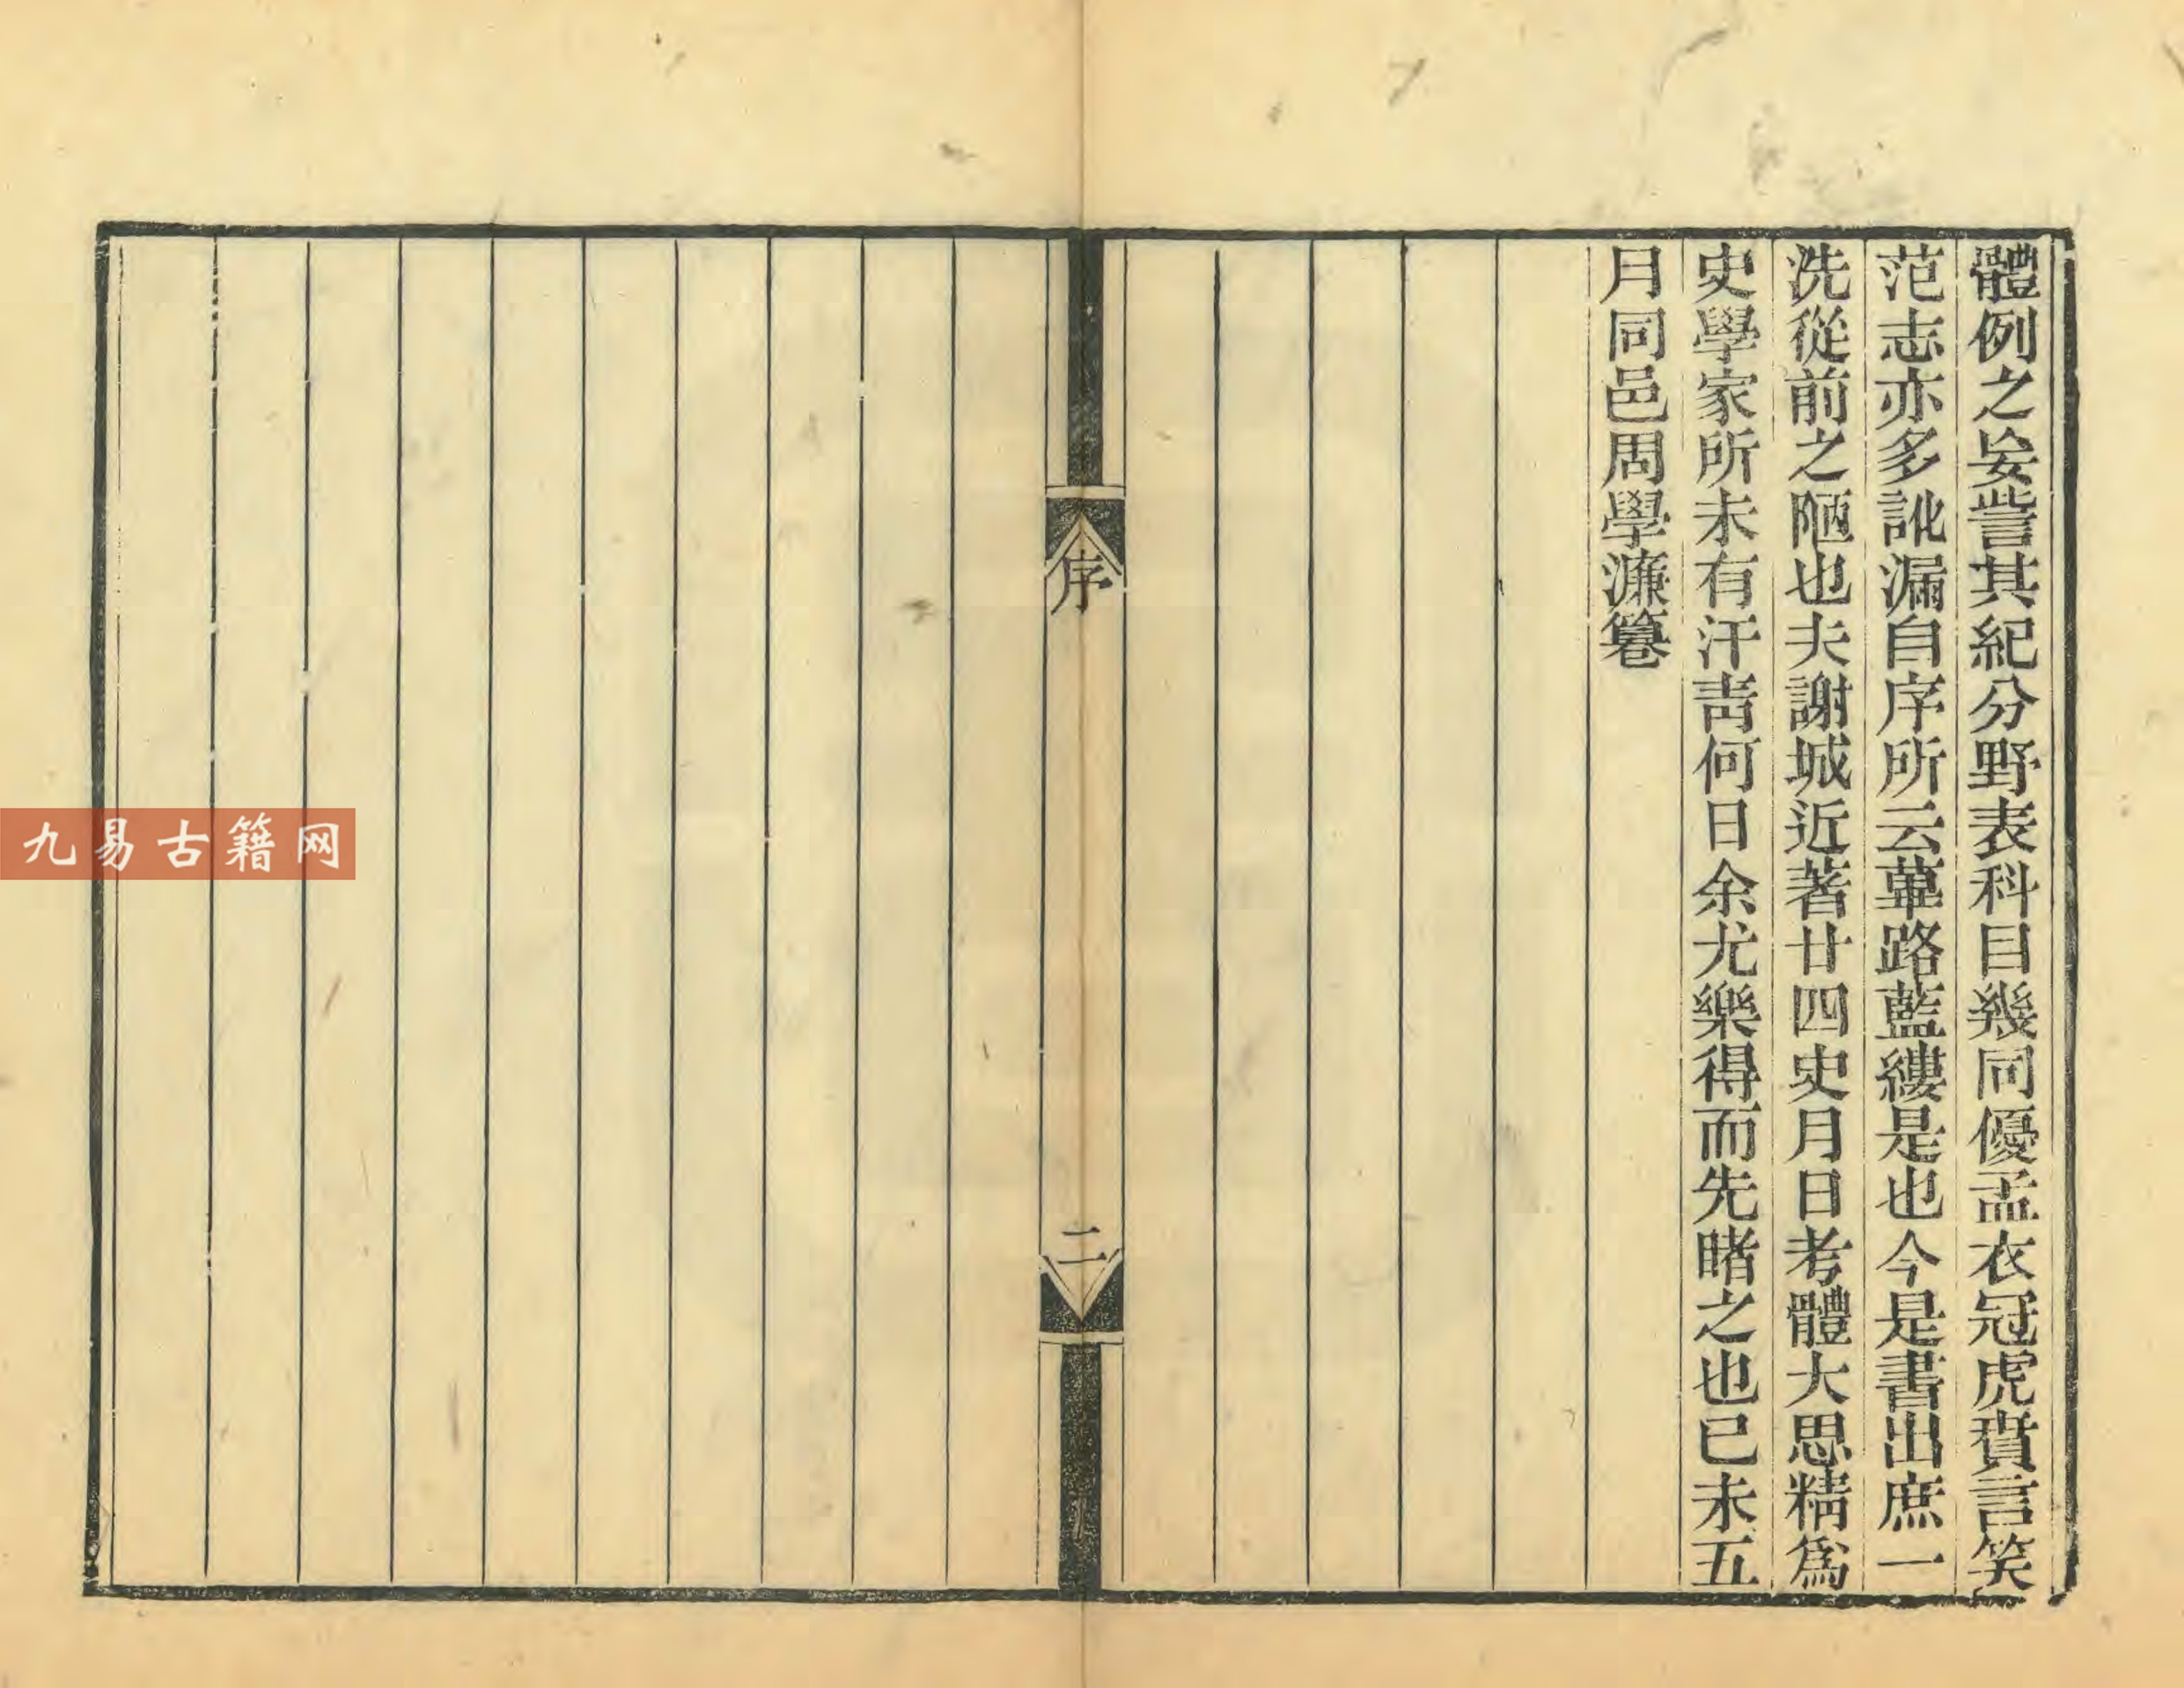 體例之妄訾其紀分野表科目幾同優孟衣冠虎賁言笑
范志亦多訛漏自序所云蓽路藍縷是也今是書出庶一
洗從前之陋也夫謝城近著廿四史月日考體大思精爲
史學家所未有汗靑何日余尤樂得而先睹之也已未五
月同邑周學濂篹
序
二
九易古籍网